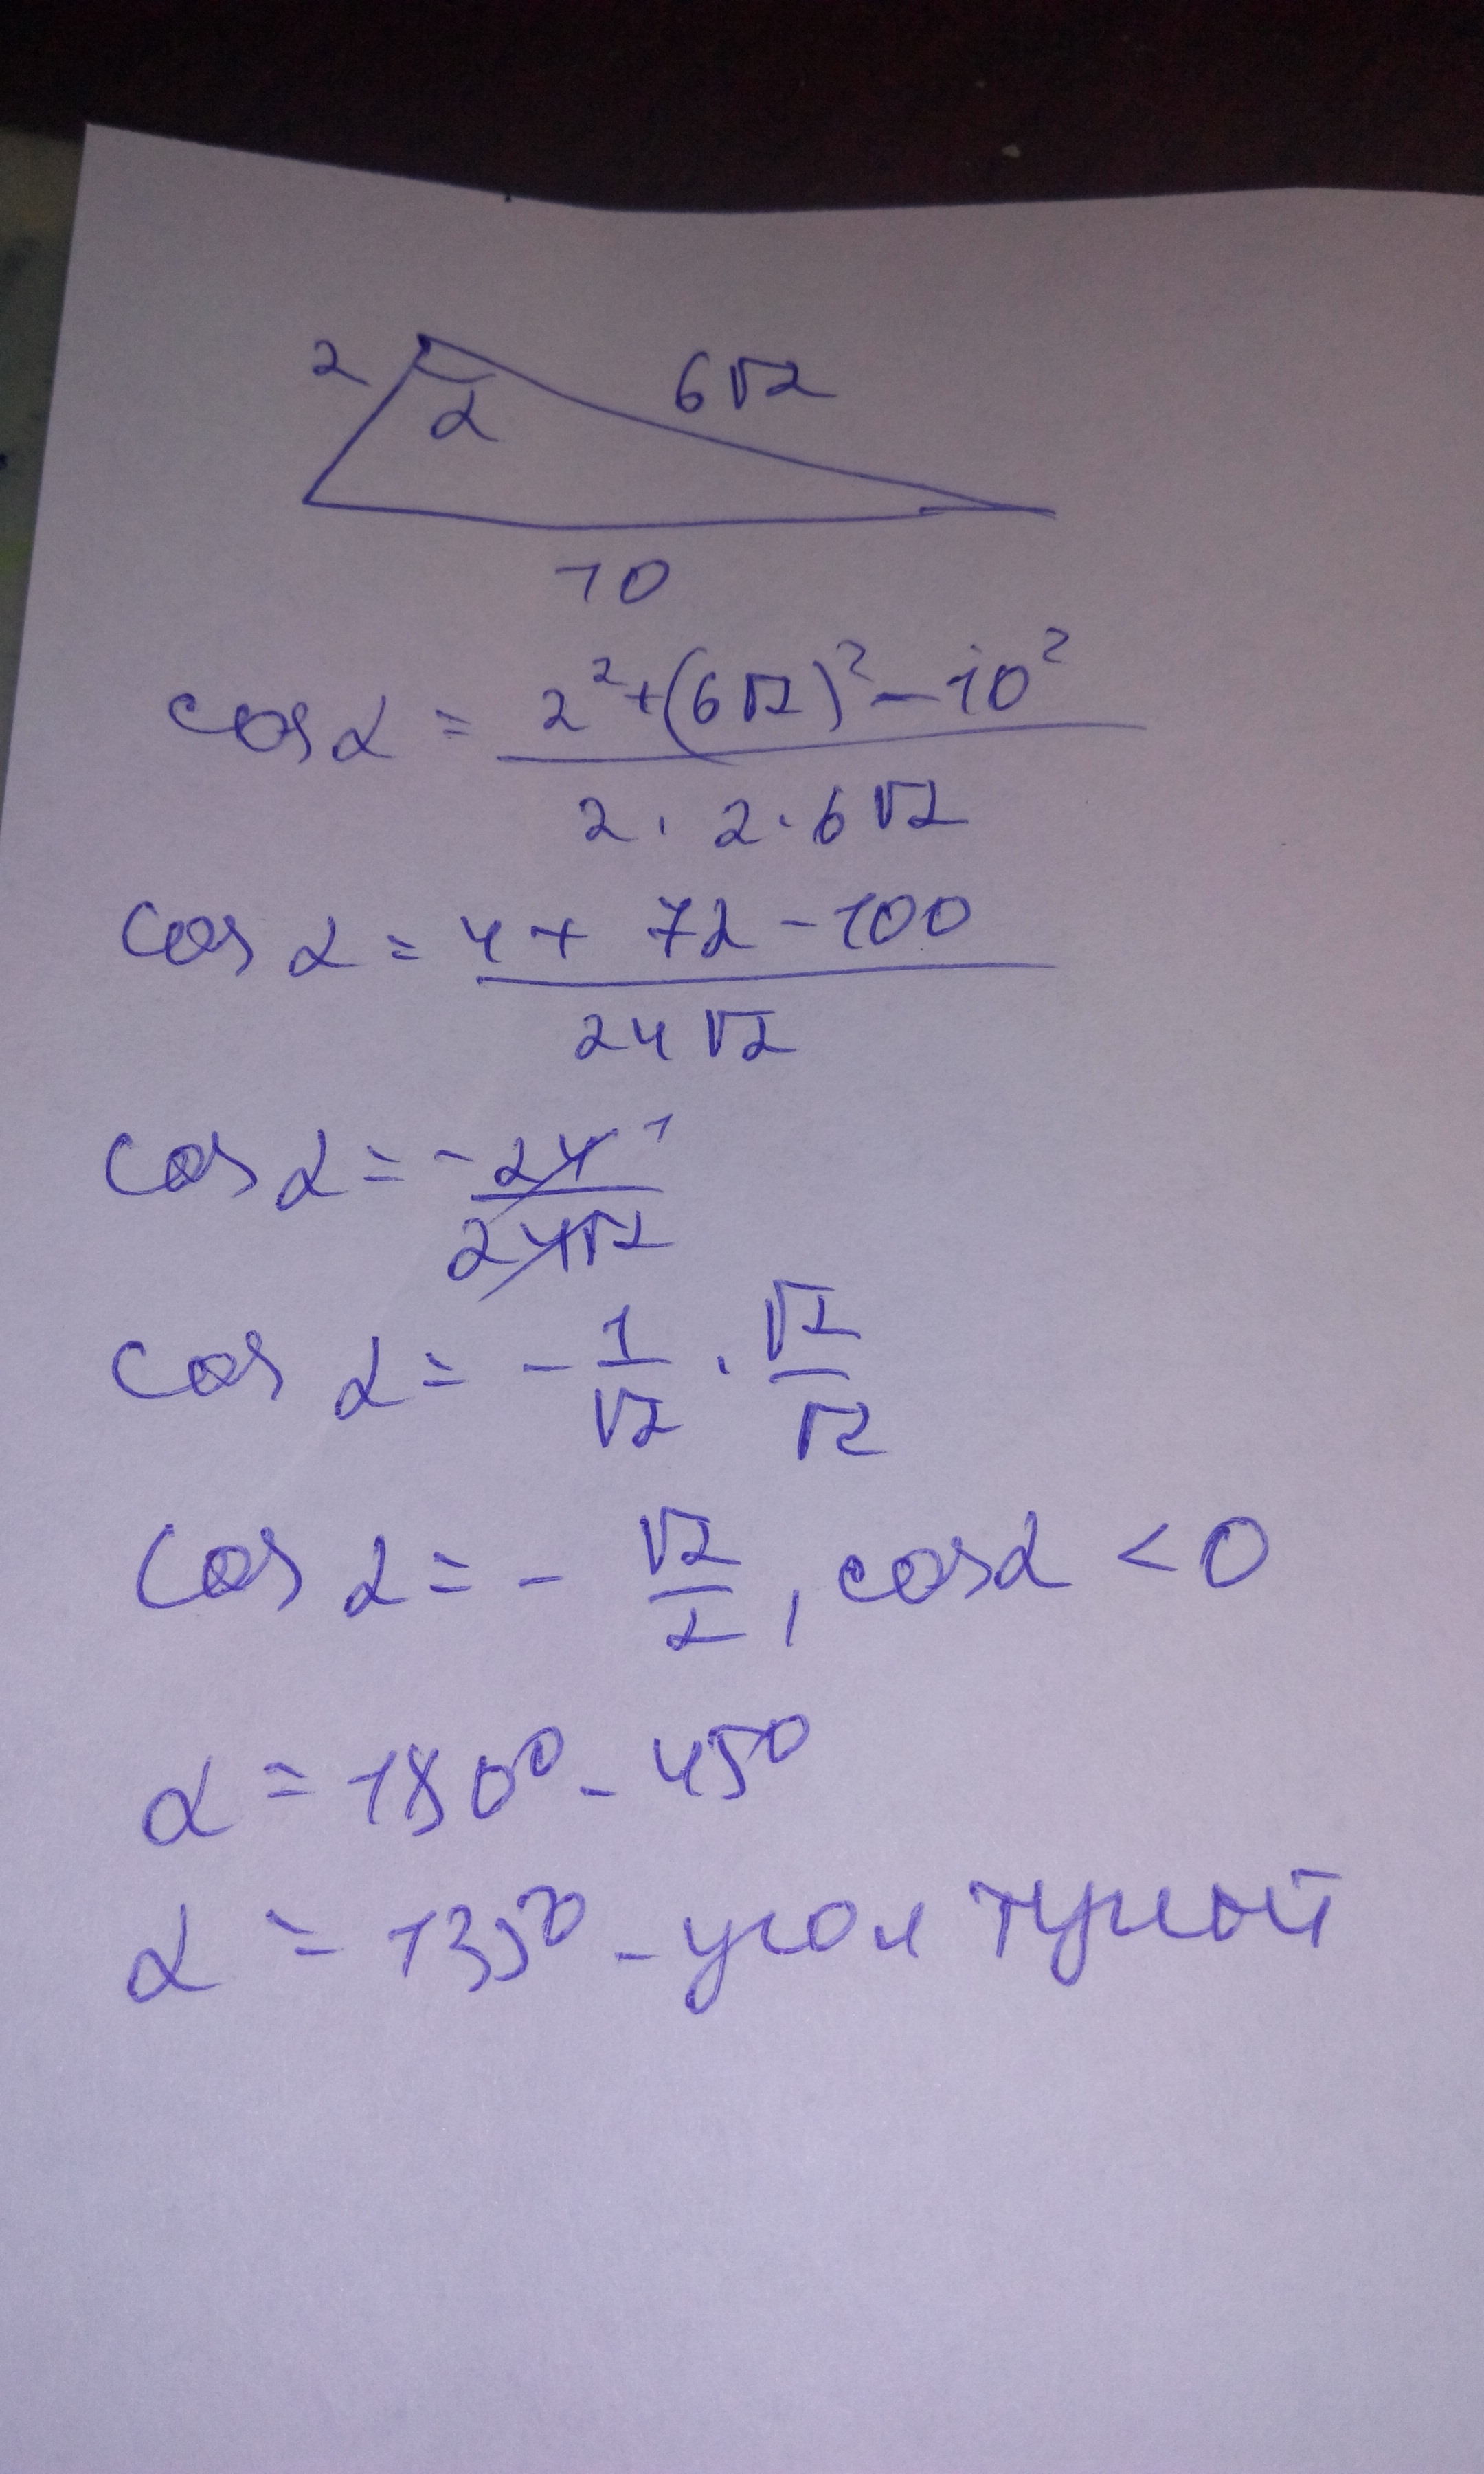 2
6√2
α
10
cos α = (2² + (6√2)² - 10²) / (2 · 2 · 6√2)
cos α = (4 + 72 - 100) / (24√2)
cos α = - 24 1 / 24√2
cos α = - 1/√2 · √2/√2
cos α = - √2/2, cos α < 0
α = 180° - 45°
α = 135° - угол тупой